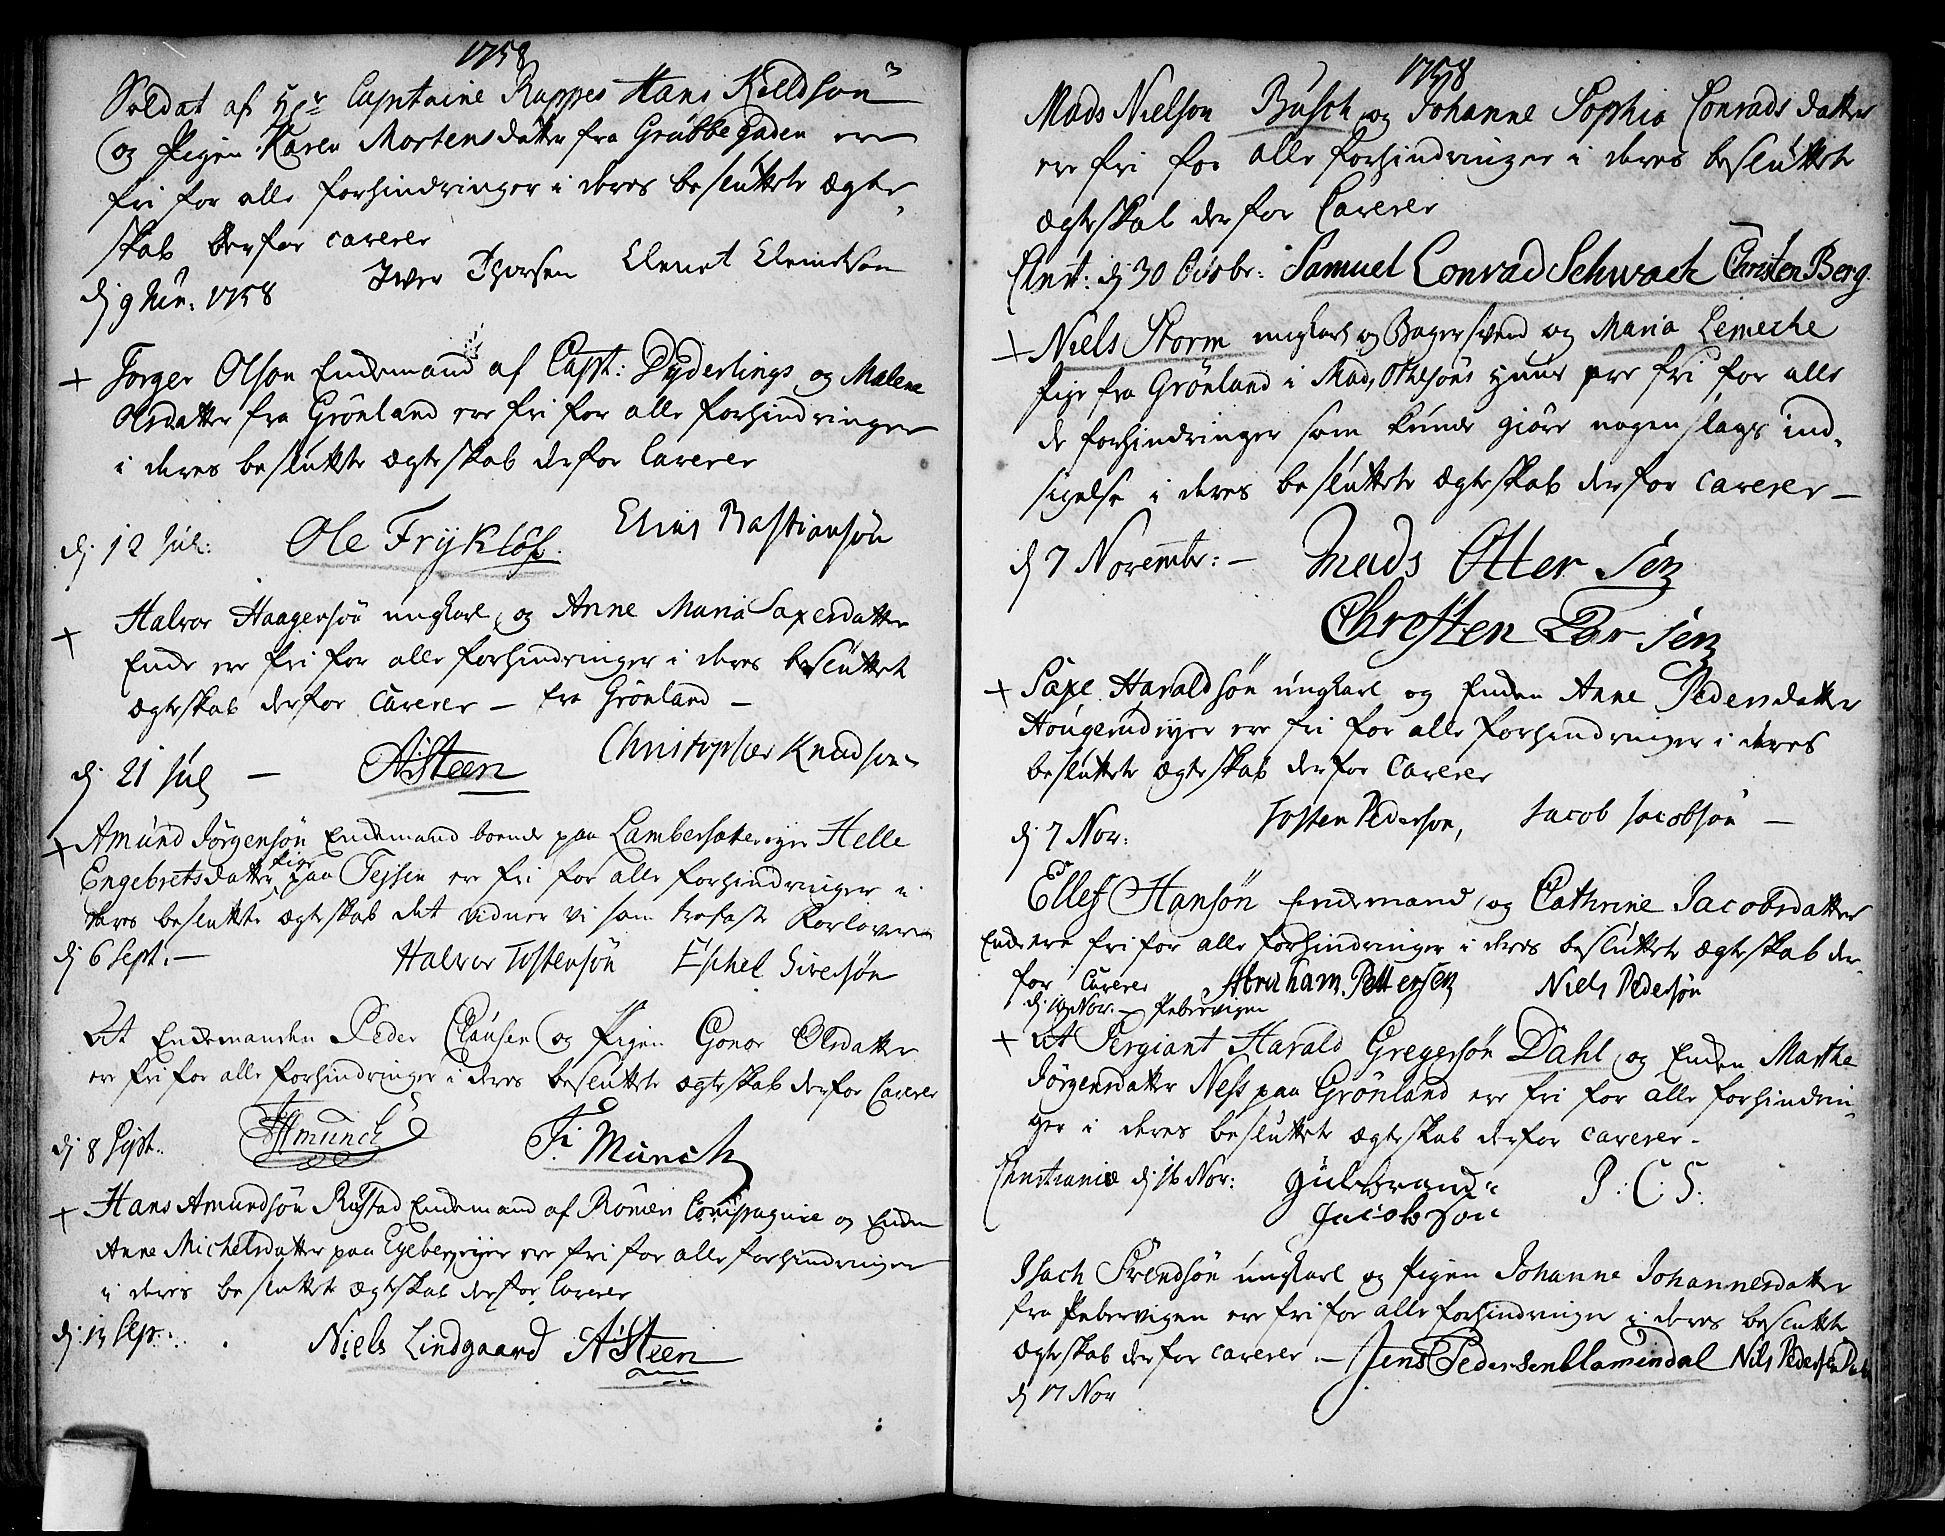 1758
Soldat af Hr Captaine Rappes Hans Kield søn
og Pigen Karen Mortensdatter fra Grübbegaden ere
fri for alle forhindringer i deres besluttete ægte¬
skab derfor caverer
Iver Thorsen Clemet Clemetsen
1758
Torger Olson Endemand af Capt: Dyderlings og Malene
Olsdatter fra Grønland ere fri for alle forhindringer
i deres beslutte ægteskab derfor Caverer
d. 12 Jul: Ole Frykløf. Elias Bastiansøn
+
Halvor Haagensøn ungkarl og Anne Maria Saxesdatter
Enke ere fri for alle forhindringer i deres besluttet
ægteskab derfor Caverer – fra Grønland –
d. 21 Jul – ASteen Christopher Knudsen
+ Amund Jörgensøn Endemand boende paa Lambersætereyer Helle
Engebretsdatter pige paa Tejsen ere fri for alle forhindringer i
deres beslutte ægteskab det vidner vi som trofaste Forlovere
d 6 Sept. – Halvor Tostensøn Eschel Siversøn
At Endemanden Peder Clausen og Pigen Gonor Olsdatter
ere fri for alle forhindringer i deres besluttete ægteskab derfor Caverer
d. 8 Sept. Münch F: Münch
+ Hans Amundsøn Rustad Endemand af Römers Compagnie og Enken
Anne Michelsdatter paa Egeberg eyer ere fri for alle forhindringer
i deres besluttete ægteskab derfor Caverer
d. 13 Sep: Niels Lindgaard ASteen
1758
Mads Nielson Busch og Johanne Sophia Conrads datter
ere fri for alle forhindringer i deres besluttete
ægteskab derfor Caverer
d 30 Octobr: Samuel Conrad Schwach Christen Berg
+ Niels Storm ungkarl og Bagersvend og Maria Lemeche
pige fra Grønland i Mads Ottesøns Huus ere fri for alle
de forhindringer som kunde giøre nogen slags ind¬
sigelse i deres besluttete ægteskab derfor caverer –
d 7 Novembr: – Mads Otter sen
Chresten Lar sen
+ Saxe Haraldsøn ungkarl og Enken Anne Pedersdatter
ere fri for alle forhindringer i deres
besluttete ægteskab derfor Caverer
d 7 Nov: Tosten Pederson, Jacob Jacobsøn –
Ellef Hansøn Endemand og Cathrine Jacobsdatter
Enke ere fri for alle forhindringer i deres besluttete ægteskab der¬
for Caverer Abraham Pettersen Niels Pedersøn
d. 10 Nov. – Pebervigen
+ At Sergiant Harald Gregersøn Dahl og Enken Marthe
Jørgensdatter Ness paa Grønland ere fri for alle forhindrin¬
ger i deres besluttete ægteskab derfor caverer –
Christianie d 16 Nov: Gulbrand P: C: S:
Jacobsøn
Isach Svendsøn ungkarl og Pigen Johanne Johannesdatter
fra Pebervigen ere fri for alle forhindringer i deres besluttete
ægteskab derfor caverer – Jens Pedersen Blomendal Nils Pedersen
d 17 Nov